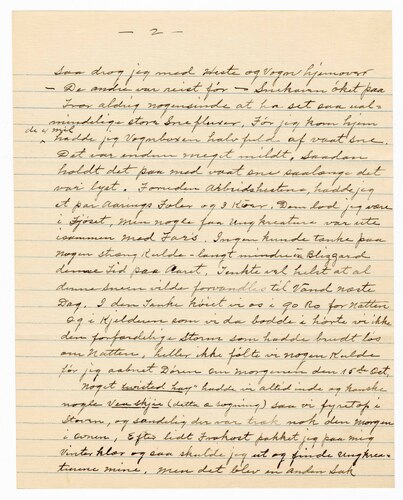 — 2 —
Saa drog jeg med Heste og Vogn hjemover
— De andre var reist før — Snekaven øket paa
Tror aldrig nogensinde at ha set saa ual-
mindelige store Snefluer, Før jeg kom hjem
de 4 mil
hadde jeg Vognboxen halv fuld af vaat Sne.
Det var endnu meget mildt, Saadan
holdt det paa med vaat Sne saalænge det
var lyst. Foruden Arbeidshestene, hadde jeg
et par Aarings Foler og 3 Kjør. Dem lod jeg være
i Fjøset, men nogle faa Ungkreature var ute
isammen med Fars. Ingen kunde tænke paa
nogen stræng Kulde - langt mindre en Blizzard
denne Tid paa Aaret, Tænkte vel helst at al
denne Sneen vilde forvandles til Vand næste
Dag. I den Tanke høiet vi os i go Ro for Natten
og i Kjelderen som vi da bodde i hørte vi ikke
den forfærdelige Storm som hadde brudt løs
om Natten, heller ikke følte vi nogen Kulde
før jeg aabnet Døren om morgenen den 15de Oct.
Noget twisted hay hadde vi altid inde og kanske
nogle Ven skjir (dette a sogning) saa vi fyret op i
Stoven, og sandelig der var træk nok den Morgen
i ovnen, Efter lidt Frokost pakket jeg paa mig
Vinterklær og saa skulde jeg ut og finde Ungkrea-
turene mine, men det blev en anden Sak